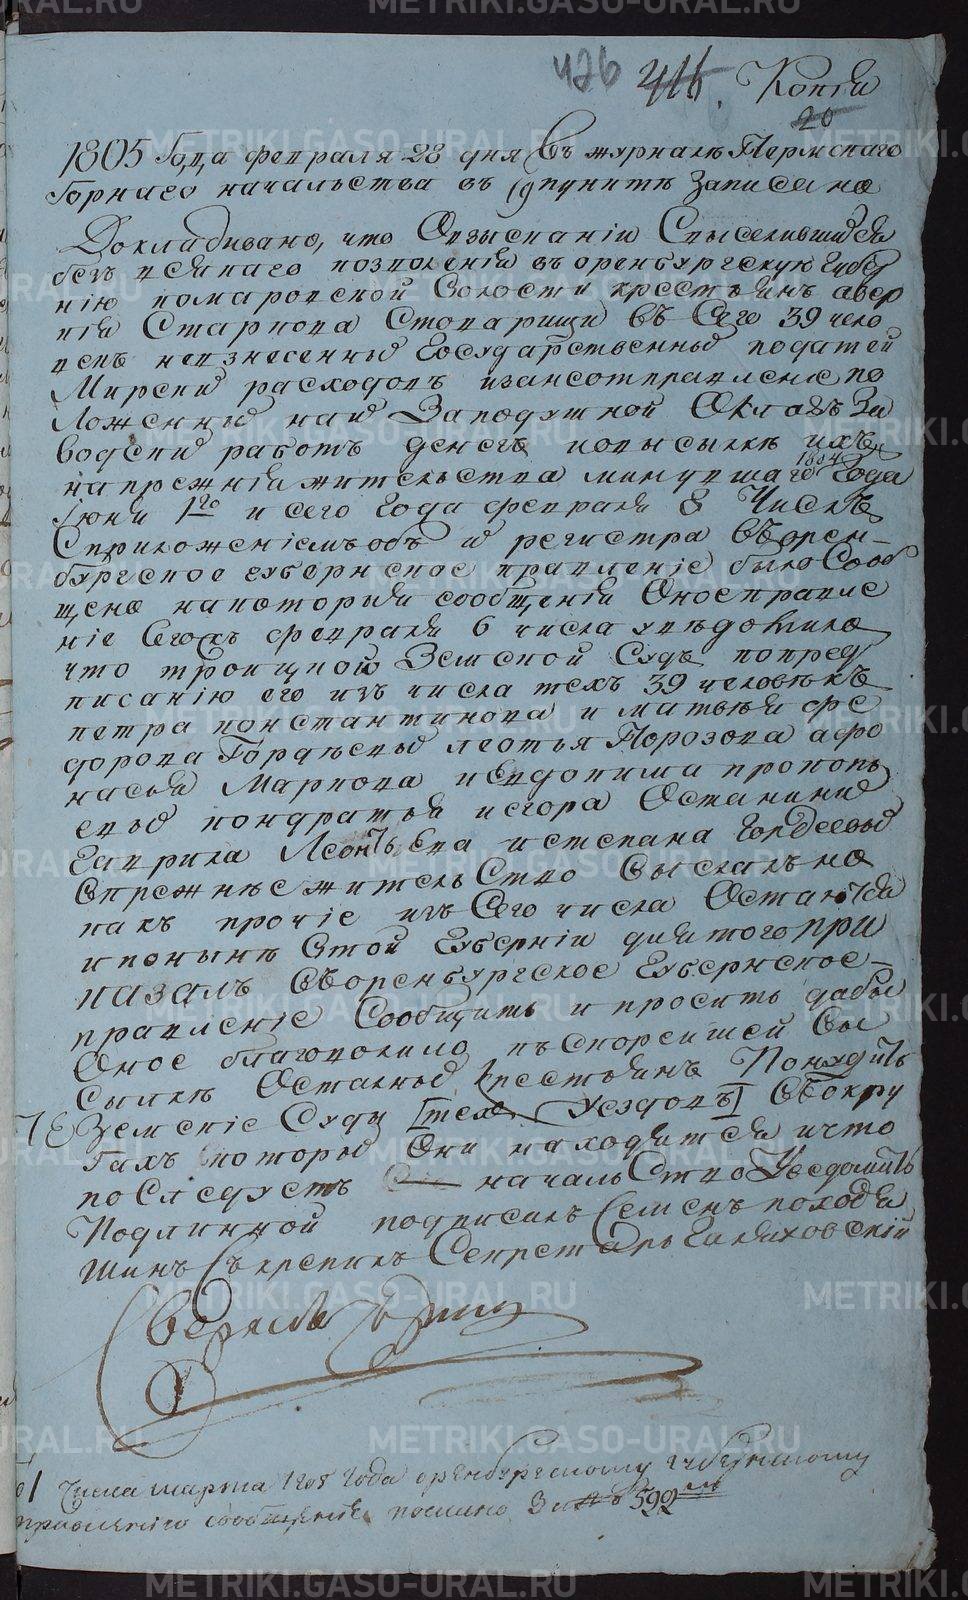 426 416. Копія
20
1805 Года февраля 28 дня Въ журналѣ Пермскаго
Горнаго начальства въ пунктѣ Записано
Докладывано, что Овзысканіи Свыселившихся
безъ всякаго позволенія въ оренбургскую губер
нію комаровской Волости крестьянъ авер
кія Старкова Стоварищи въ Сего 39 чело
векъ невзнесенныхъ Государственныхъ податей
Мирскихъ расходовъ
ложенныхъ на Заподушной Окладъ За
водскія работъ денегъ иовысылкѣ ихъ
напрежнія жительства минувшаго 1804 Года
Іюня 1го и сего Года февраля 8 Числъ
Сприложеніемъ объ и регистра въ орен-
бургское губернское правленіе было Сооб
щено накоторыя сообщеніи Оное правле
ніе февраля 6 числа увѣдомило
что троицкой Земской Судъ попред
писанію его изъ числа тѣхъ 39 человѣкъ
петра константинова и матвѣя фе
дорова Гордѣевыхъ леотья Морозова афо
насья Маркова иевдокима прокопь
евыхъ кондратья иегора Останиныхъ
Гаврила Леонтьева истепана Гордеевыхъ
Впрежнѣе жительство выслалъ но
какъ прочіе изъ Сего числа Остаются
и понынѣ Втой Губерніи длятого при
казалъ Въоренбургское Губернское-
правленіе Сообщить и просить дабы
Оное благоволило къскорейшей Вы
сылкѣ Остальныхъ крестьянъ Понудить
Земскіе Суды [тех уездовъ] Въокру
гахъ которыхъ Они находятся ичто
послѣдуетъ начальство Уведомить
Подлинной подписалъ Семенъ
шинъ Скрепилъ Секретарь Галяховскій
Сверялъ
1 Числа марта 1805 года оренбургскому губернскому
правленію сообщеніе послано За № 592мъ